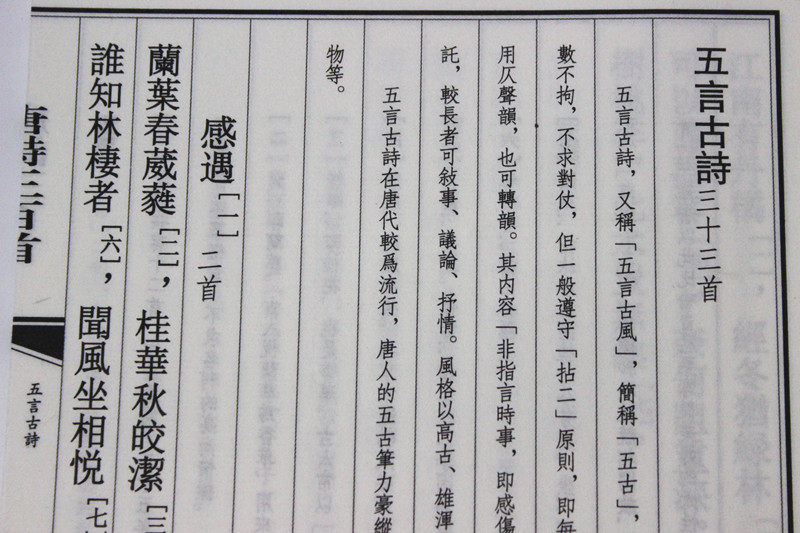 五言古詩三十三首
五言古詩，又稱「五言古風」，簡稱「五古」，
數不拘，不求對仗，但一般遵守「拈二」原則，即每
用仄聲韻，也可轉韻。其内容「非指言時事，即感傷
託，較長者可敍事、議論、抒情。風格以高古、雄渾
五言古詩在唐代較爲流行，唐人的五古筆力豪縱
物等。
感遇[一]二首
蘭葉春葳蕤[二]，桂華秋皎潔[三
誰知林棲者[六]，聞風坐相悦[七
唐詩三百首
五言古詩